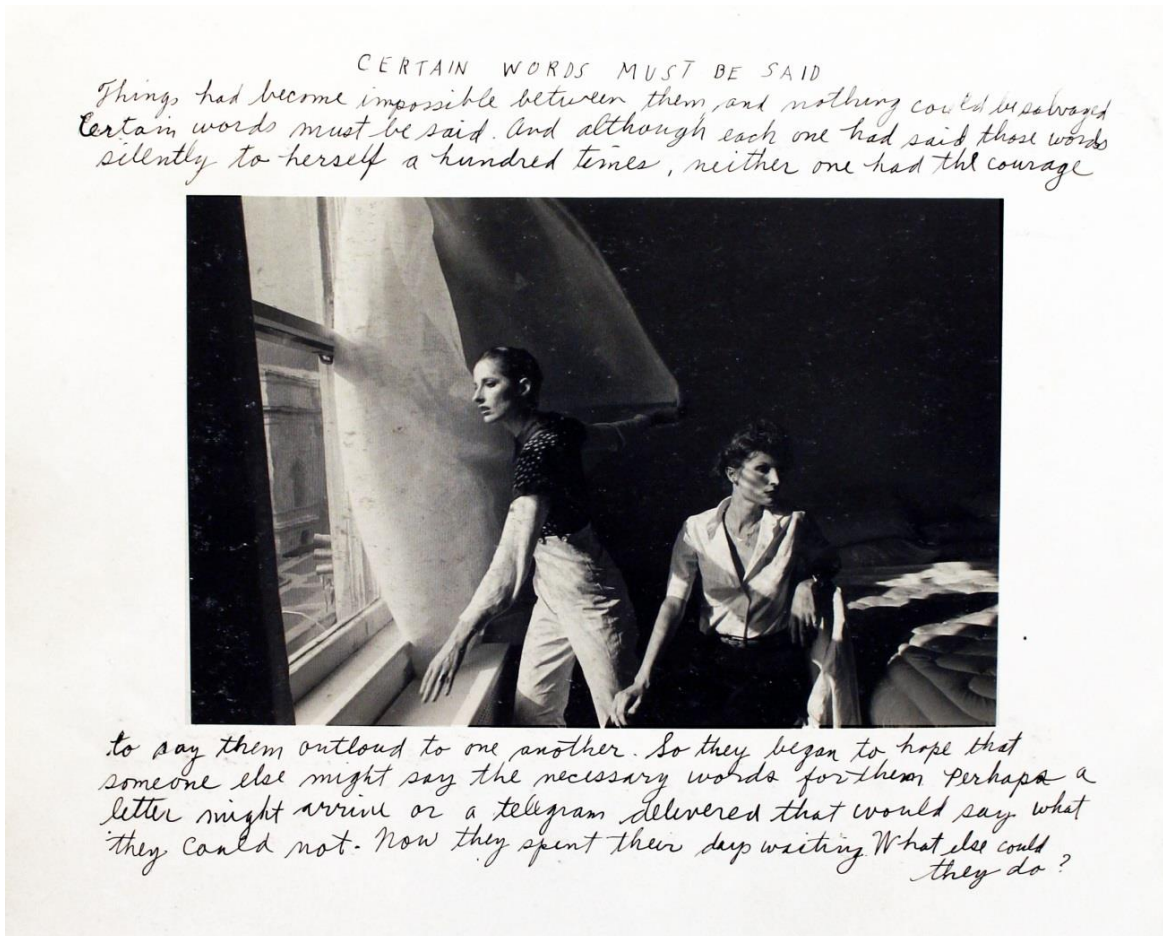 CERTAIN WORDS MUST BE SAID
Things had become impossible between them, and nothing could be salvaged
Certain words must be said. And although each one had said those words
silently to herself a hundred times, neither one had the courage
to say them outloud to one another. So they began to hope that
someone else might say the necessary words for them Perhaps a
letter might arrive or a telegram delivered that would say what
they could not. Now they spent their days waiting What else could
they do?